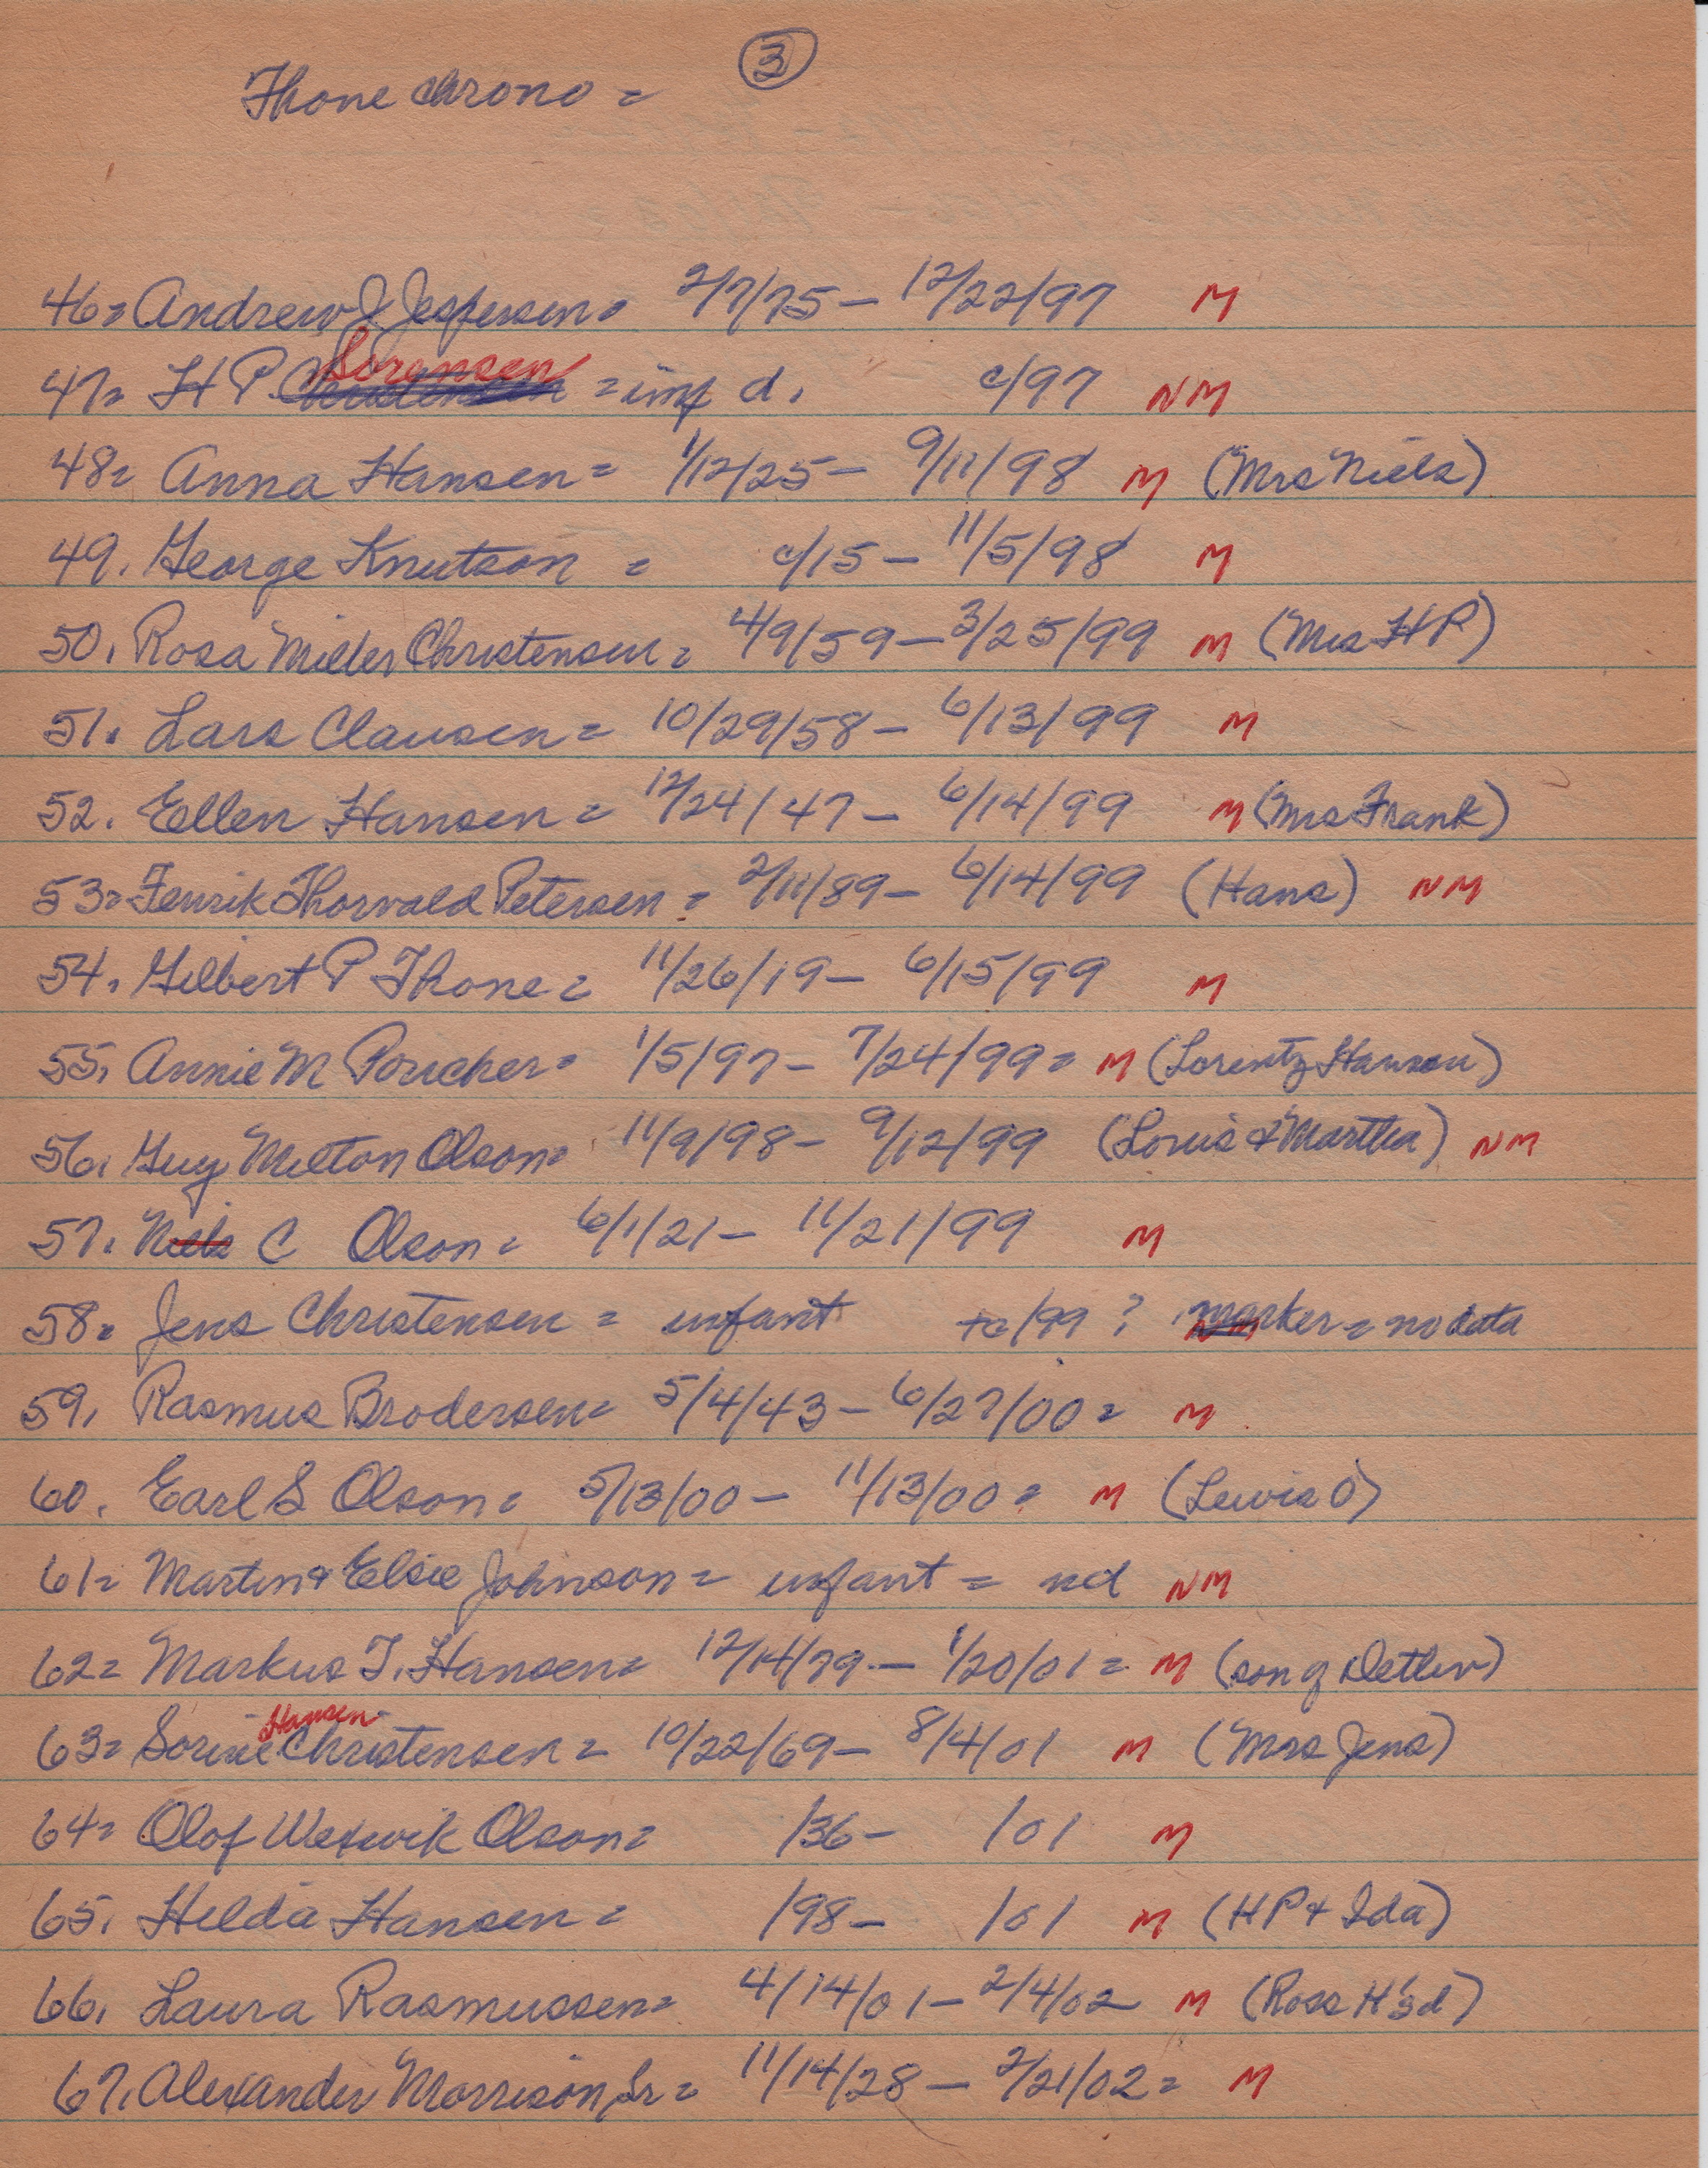 3
Thone chrono =
46= Andrew J Jespersen= 2/7/75 - 12/22/97 M
47= H P Sorensen = inf d. c/97 NM
48= Anna Hansen = 1/12/25 - 9/11/98 M (Mrs Niels)
49. George Knutson = c/15 - 11/5/98 M
50. Rosa Miller Christensen = 4/9/59 - 3/25/99 M (Mrs HP)
51. Lars Clausen = 10/29/58 - 6/13/99 M
52. Ellen Hansen = 12/24/47 - 6/14/99 M (Mrs Frank)
53= Fenrik Thorvald Petersen = 2/11/89 - 6/14/99 (Hans) NM
54. Gilbert P Thone = 11/26/19 - 6/15/99 M
55. Annie M Poucher= 1/5/97 - 7/24/99 = M (Lorentz Hanson)
56. Guy Milton Olson= 11/9/98 - 9/12/99 (Louis & Martha) NM
57. Niels C Olson = 6/1/21 - 11/21/99 M
58= Jens Christensen = infant to/99 ? marker = no data
59. Rasmus Brodersen= 5/4/43 - 6/27/00 = M
60. Earl S Olson = 5/13/00 - 11/13/00 = M (Lewis O)
61= Martin & Elsie Johnson = infant = nd NM
62= Markus T. Hansen= 12/14/79 - 1/20/01 = M (son of Detlev)
Hansen
63= Sorine Christensen = 10/22/69 - 8/4/01 M (Mrs Jens)
64= Olof Wexwik Olson= /36 - /01 M
65. Hilda Hansen = /98 - /01 M (HP & Ida)
66. Laura Rasmussen= 4/14/01 - 2/4/02 M (Ross H'sd)
67. Alexander Morrison, Sr = 11/14/28 - 2/21/02 = M